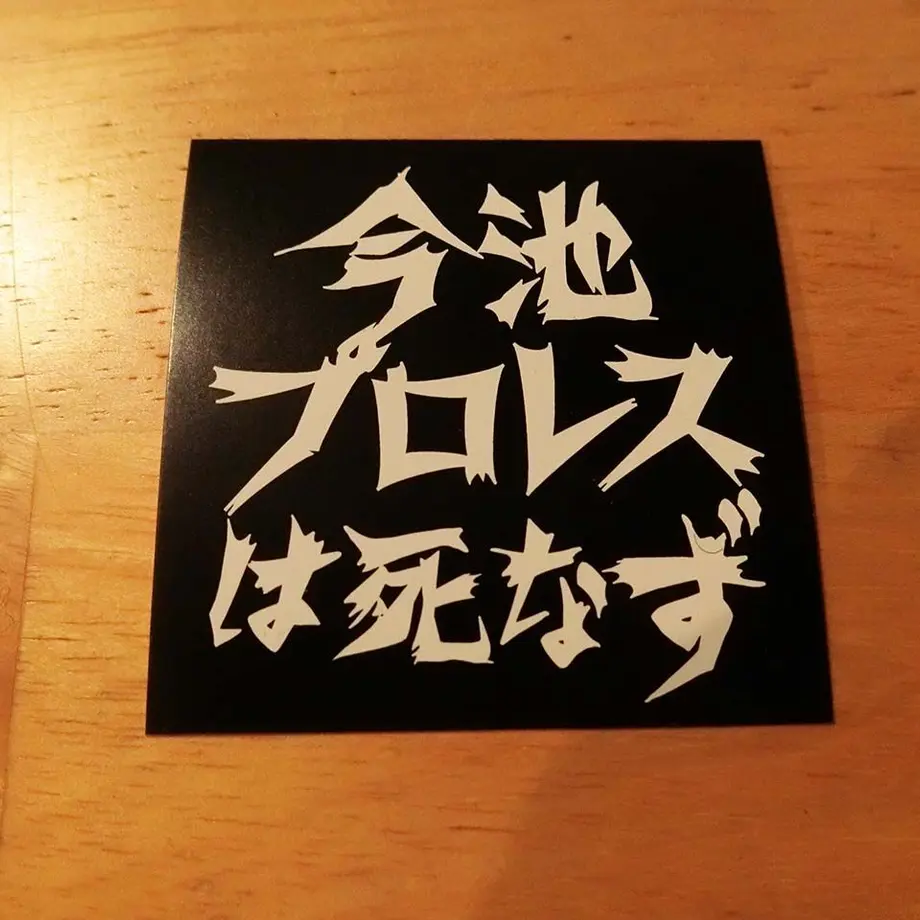 今池
プロレス
は死なず